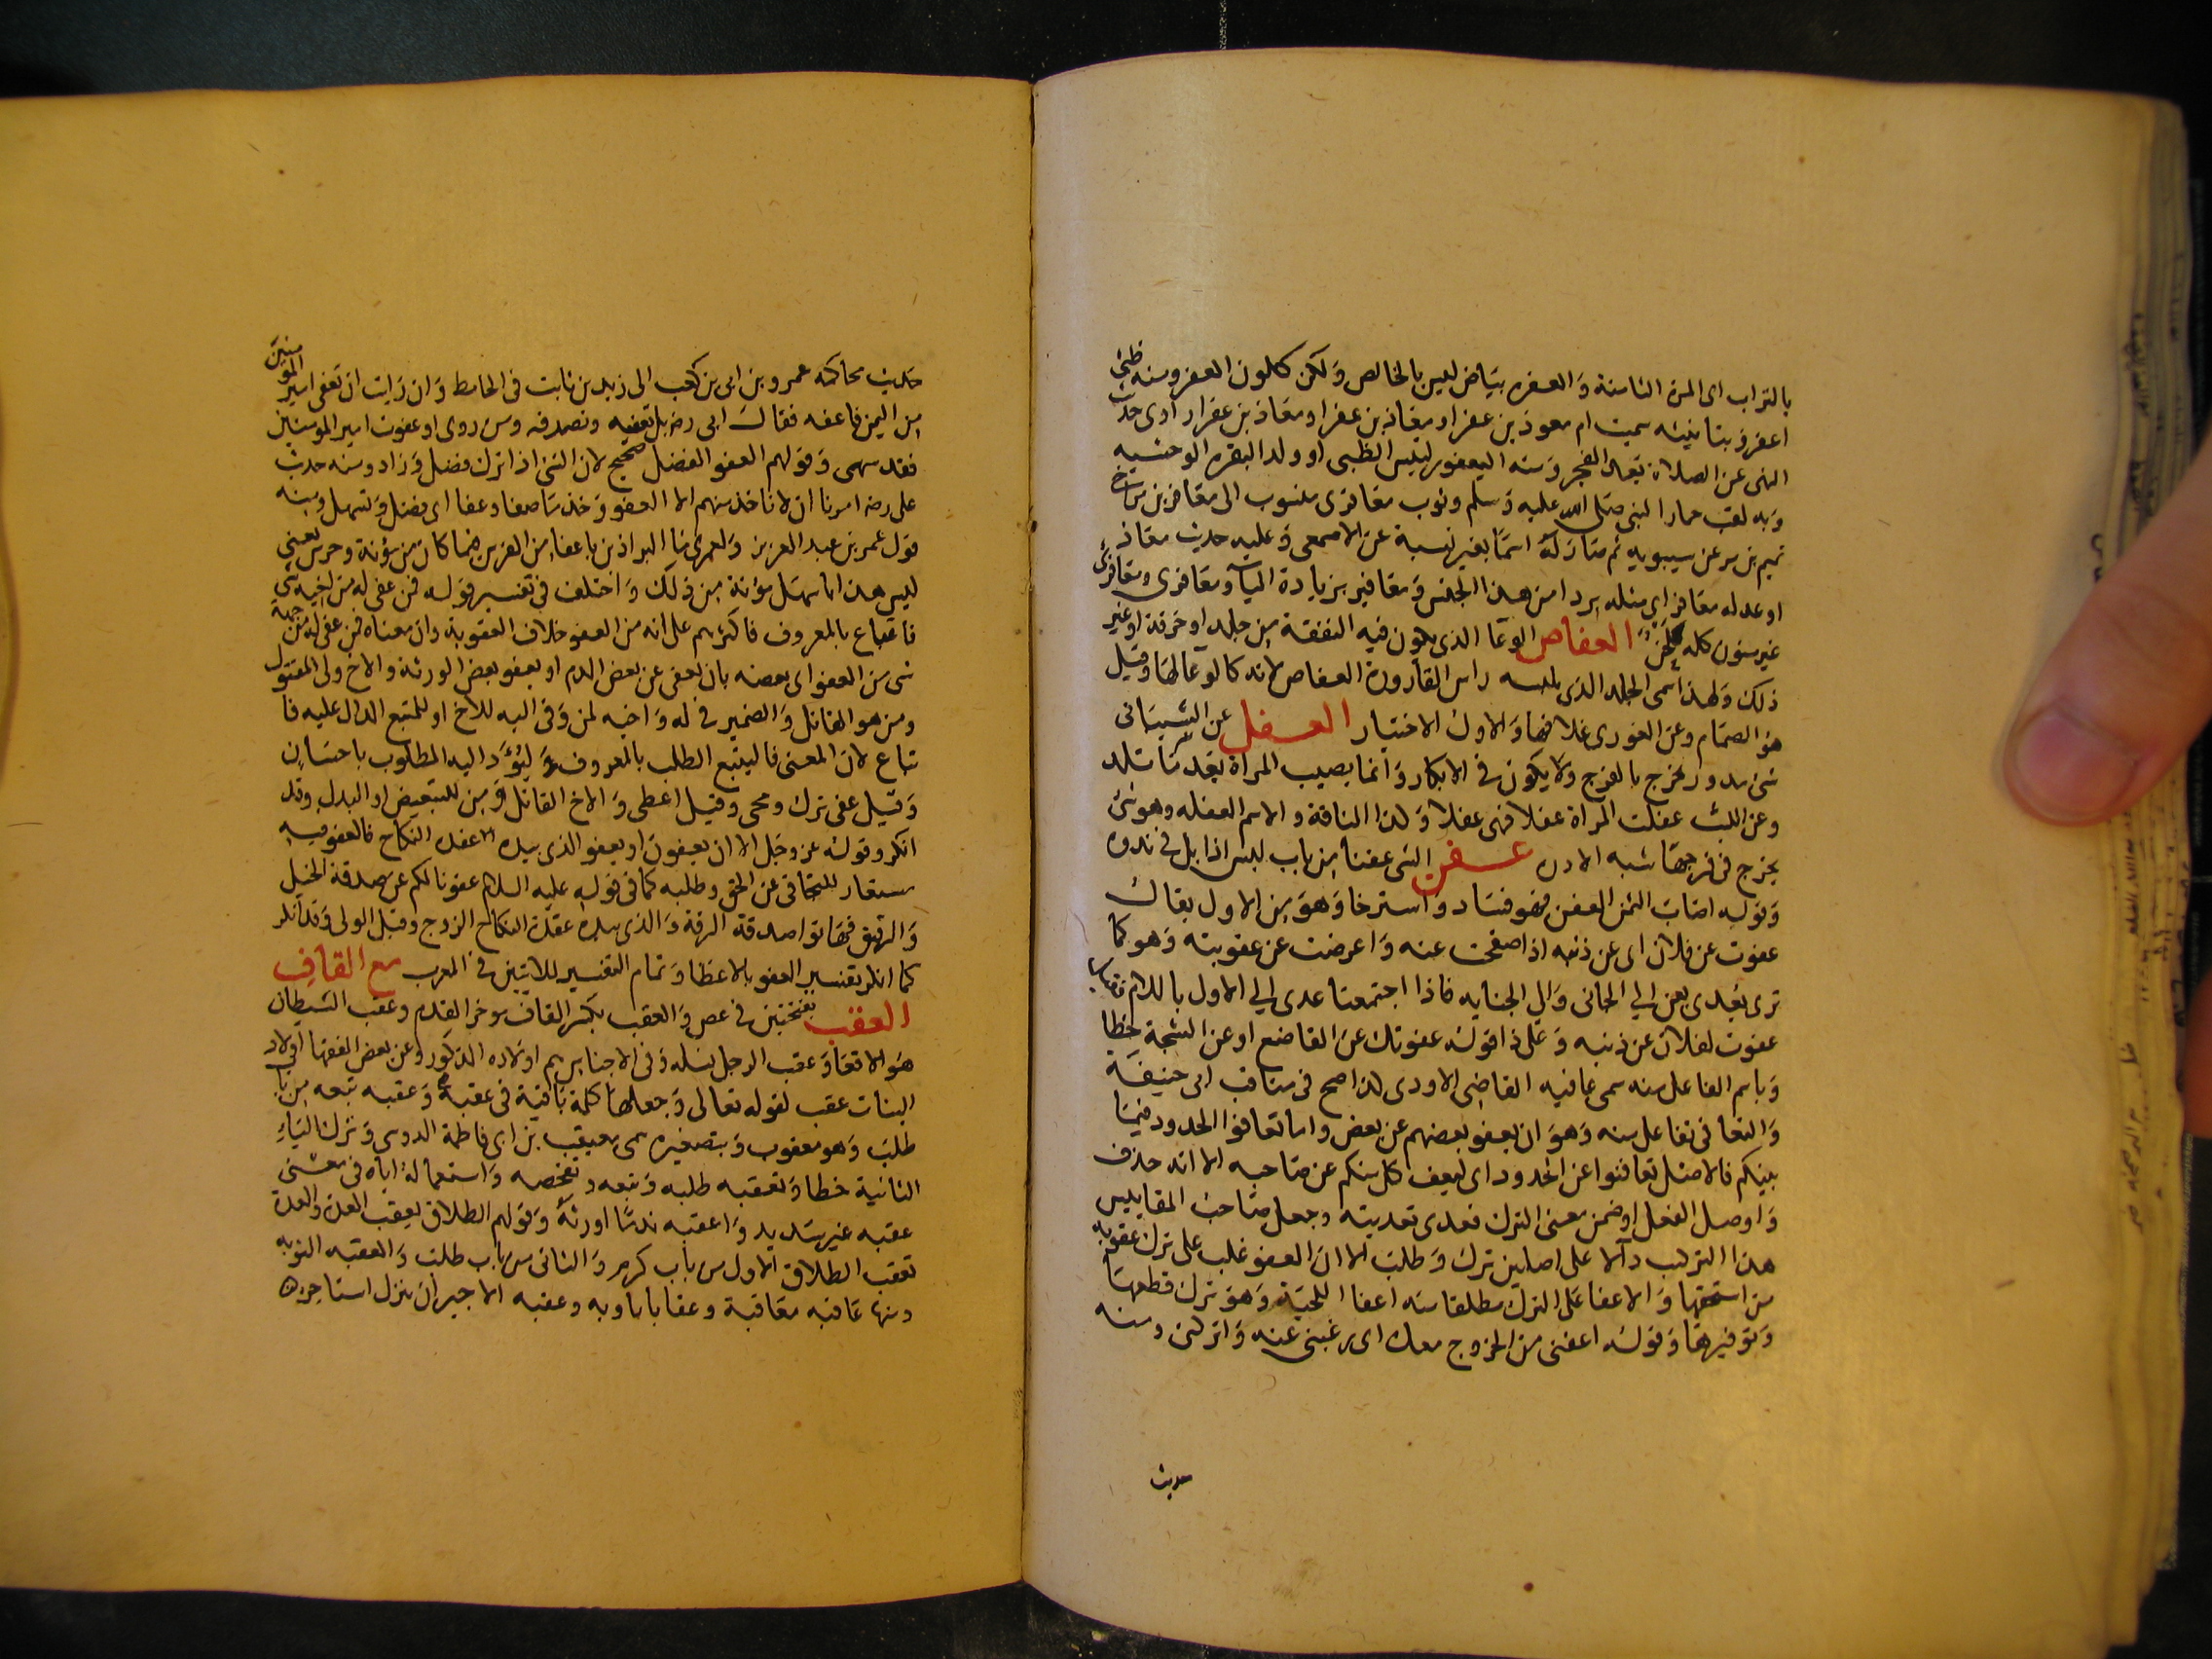 بالتراب اى المرة الثامنة والعفره بياض ليس بالخالص ولكن كلون العفر ومنه ظبى
اعفر وبتانيثه سميت ام معوذ بن عفرا ومعاذ بن عفرا اوى حديث
النهى عن الصلاة بعد الفجر ومنه اليعفور لتيس الظبى او ولد البقره الوحشيه
وبه لقب حمار النبى صلى الله عليه وسلم وثوب معافرى منسوب الى معافر بن مر اخ
تميم بن مر عن سيبويه ثم صار له اسما بغير نسبة عن الاصمعى وعليه حديث معاذ
او عدله معافر اى مثله بردا من هذا الجنس ومعافير بزيادة اليا ومعافرى ومعافرى
غير منون كله لحن العفاص الوعا الذى يكون فيه النفقة من جلد او خرقة او غير
ذلك ولهذا سمى الجلد الذى يلبسه راس القارورة العفاص لانه كالوعا لها وقيل
هو الصمام وعن الغورى غلافها والاول الاختيار العفل عن الشيبانى
شى مدور يخرج بالفرج ولا يكون فى الابكار وانما يصيب المراة بعد ما تلد
وعن الليث عفلت المراة عفلا فهى عفلا وكذا الناقة والاسم العفله وهو شى
يخرج فى فرجها شبه الادره عفن الشى عفنا من باب لبس اذا بلى فى ندوه
وقوله اصاب الثمن العفن فهو فساد واسترخا وهو من الاول يقال
عفوت عن فلان اى عن ذنبه اذا صفحت عنه واعرضت عن عقوبته وهو كما
ترى يعدى بعن الى الجانى والى الجنايه فاذا اجتمعتا عدى الى الاول باللام فقيل
عفوت لفلان عن ذنبه وعلى ذا قوله عفوتك عن القاضع او عن الشجة خطا
وباسم الفاعل منه سمى عافيه القاضى الاودى هكذا صح فى مناقب ابى حنيفة
والتعافى تفاعل منه وهو ان يعفو بعضهم عن بعض واما تعافوا الحدود فيما
بينكم فالاصل تعافوا عن الحدود اى ليعف كل منكم عن صاحبه الا انه حذف
واوصل الفعل او ضمن معنى الترك فعدى تعديته وجعل صاحب المقاييس
هذا التركيب دالا على اصلين ترك وطلب الا ان العفو غلب على ترك عقوبه
من استحقها والاعفا على الترك مطلقا منه اعفا اللحية وهو ترك قطعها
وتوفيرها وقوله اعفنى من الخروج معك اى رغبنى عنه واتركنى ومنه
حديث
حديث محاكمه عمر وبن ابى بن كعب الى زيد بن ثابت فى الحائط وان رايت ان تعفى امير المومنين
من اليمين فاعفه فقال ابى رضه بل نعفيه ونصدقه ومن روى او عفوت امير المومنين
فقد سهى وقولهم العفو الفضل صحيح لان الشى اذا ترك فضل وزاد ومنه حديث
على رضه امرنا ان لا ناخذ منهم الا العفو وخذ ما صفا وعفا اى فضل وتسهل ومنه
قول عمر بن عبد العزيز ولعمرى ما البراذين باعفا من الفرس فيما كان من مؤنة وحرس يعنى
ليس هذا اسهل مؤنة من ذلك واختلف فى تفسير قوله فمن عفى له من اخيه شى
فاتباع بالمعروف فاكثرهم على انه من العفو خلاف العقوبة وان معناه فمن عفى له من جهة
شى من العفو اى بعضه بان يعفى عن بعض الدم او يعفو بعض الورثة والاخ ولى المقتول
ومن هو القاتل والضمير فى له واخيه لمن وفى اليه للاخ او للمتبع الدال عليه فا
تباع لان المعنى فاليتبع الطلب بالمعروف وليؤد اليه المطلوب باحسان
وقيل عفى ترك ومحى وقيل اعطى والاخ القاتل ومن للتبعيض او البدل وقد
انكر وقوله عز وجل الا ان يعفون او يعفو الذى بيده عقدة النكاح فالعفو فيه
مستعار للتجافى عن الحق وطلبه كما فى قوله عليه السلام عفونا لكم عن صدقة الخيل
والرقيق فهاتوا صدقة الرقة والذى بيده عقدة النكاح الزوج وقيل الولى وقد انكر
كما انكر تفسير العفو بالاعطا وتمام التفسير للايتين فى المعرب مع القاف
العقب بفتحتين فى عص والعقب بكسر القاف موخر القدم وعقب الشيطان
هو الاقعا وعقب الرجل نسله وفى الاجناس هم اولاده الذكور وعن بعض الفقها اولاد
البنات عقب لقوله تعالى وجعلها كلمة باقية فى عقبه وعقبه تبعه من با
طلب وهو معقوب وبتصغيره سمى معيقيب بن ابى فاطمة الدوسى وترك الياء
الثانية خطا وتعقبه طلبه وتبعه وتفحصه واستعماله اياه فى معنى
عقبه غير سديد واعقبه ندما اورثه وقولهم الطلاق يعقب العدة والعدة
تعقب الطلاق الاول من باب كرم والثانى من باب طلب والعقبه النوبه
ومنها عاقبه معاقبة وعقابا باوبه وعقبه الاجير ان ينزل استاجره